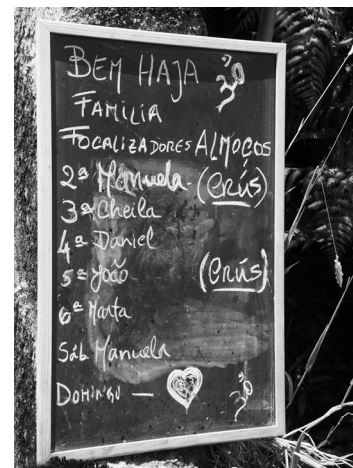 BEM HAJA ૐ
FAMILIA
FOCALIZADORES ALMOÇOS
2ª Manuela - (CRÚS)
3ª Cheila
4ª Daniel
5ª João (CRÚS)
6ª Marta
Sáb Manuela
DOMINGO — ૐ